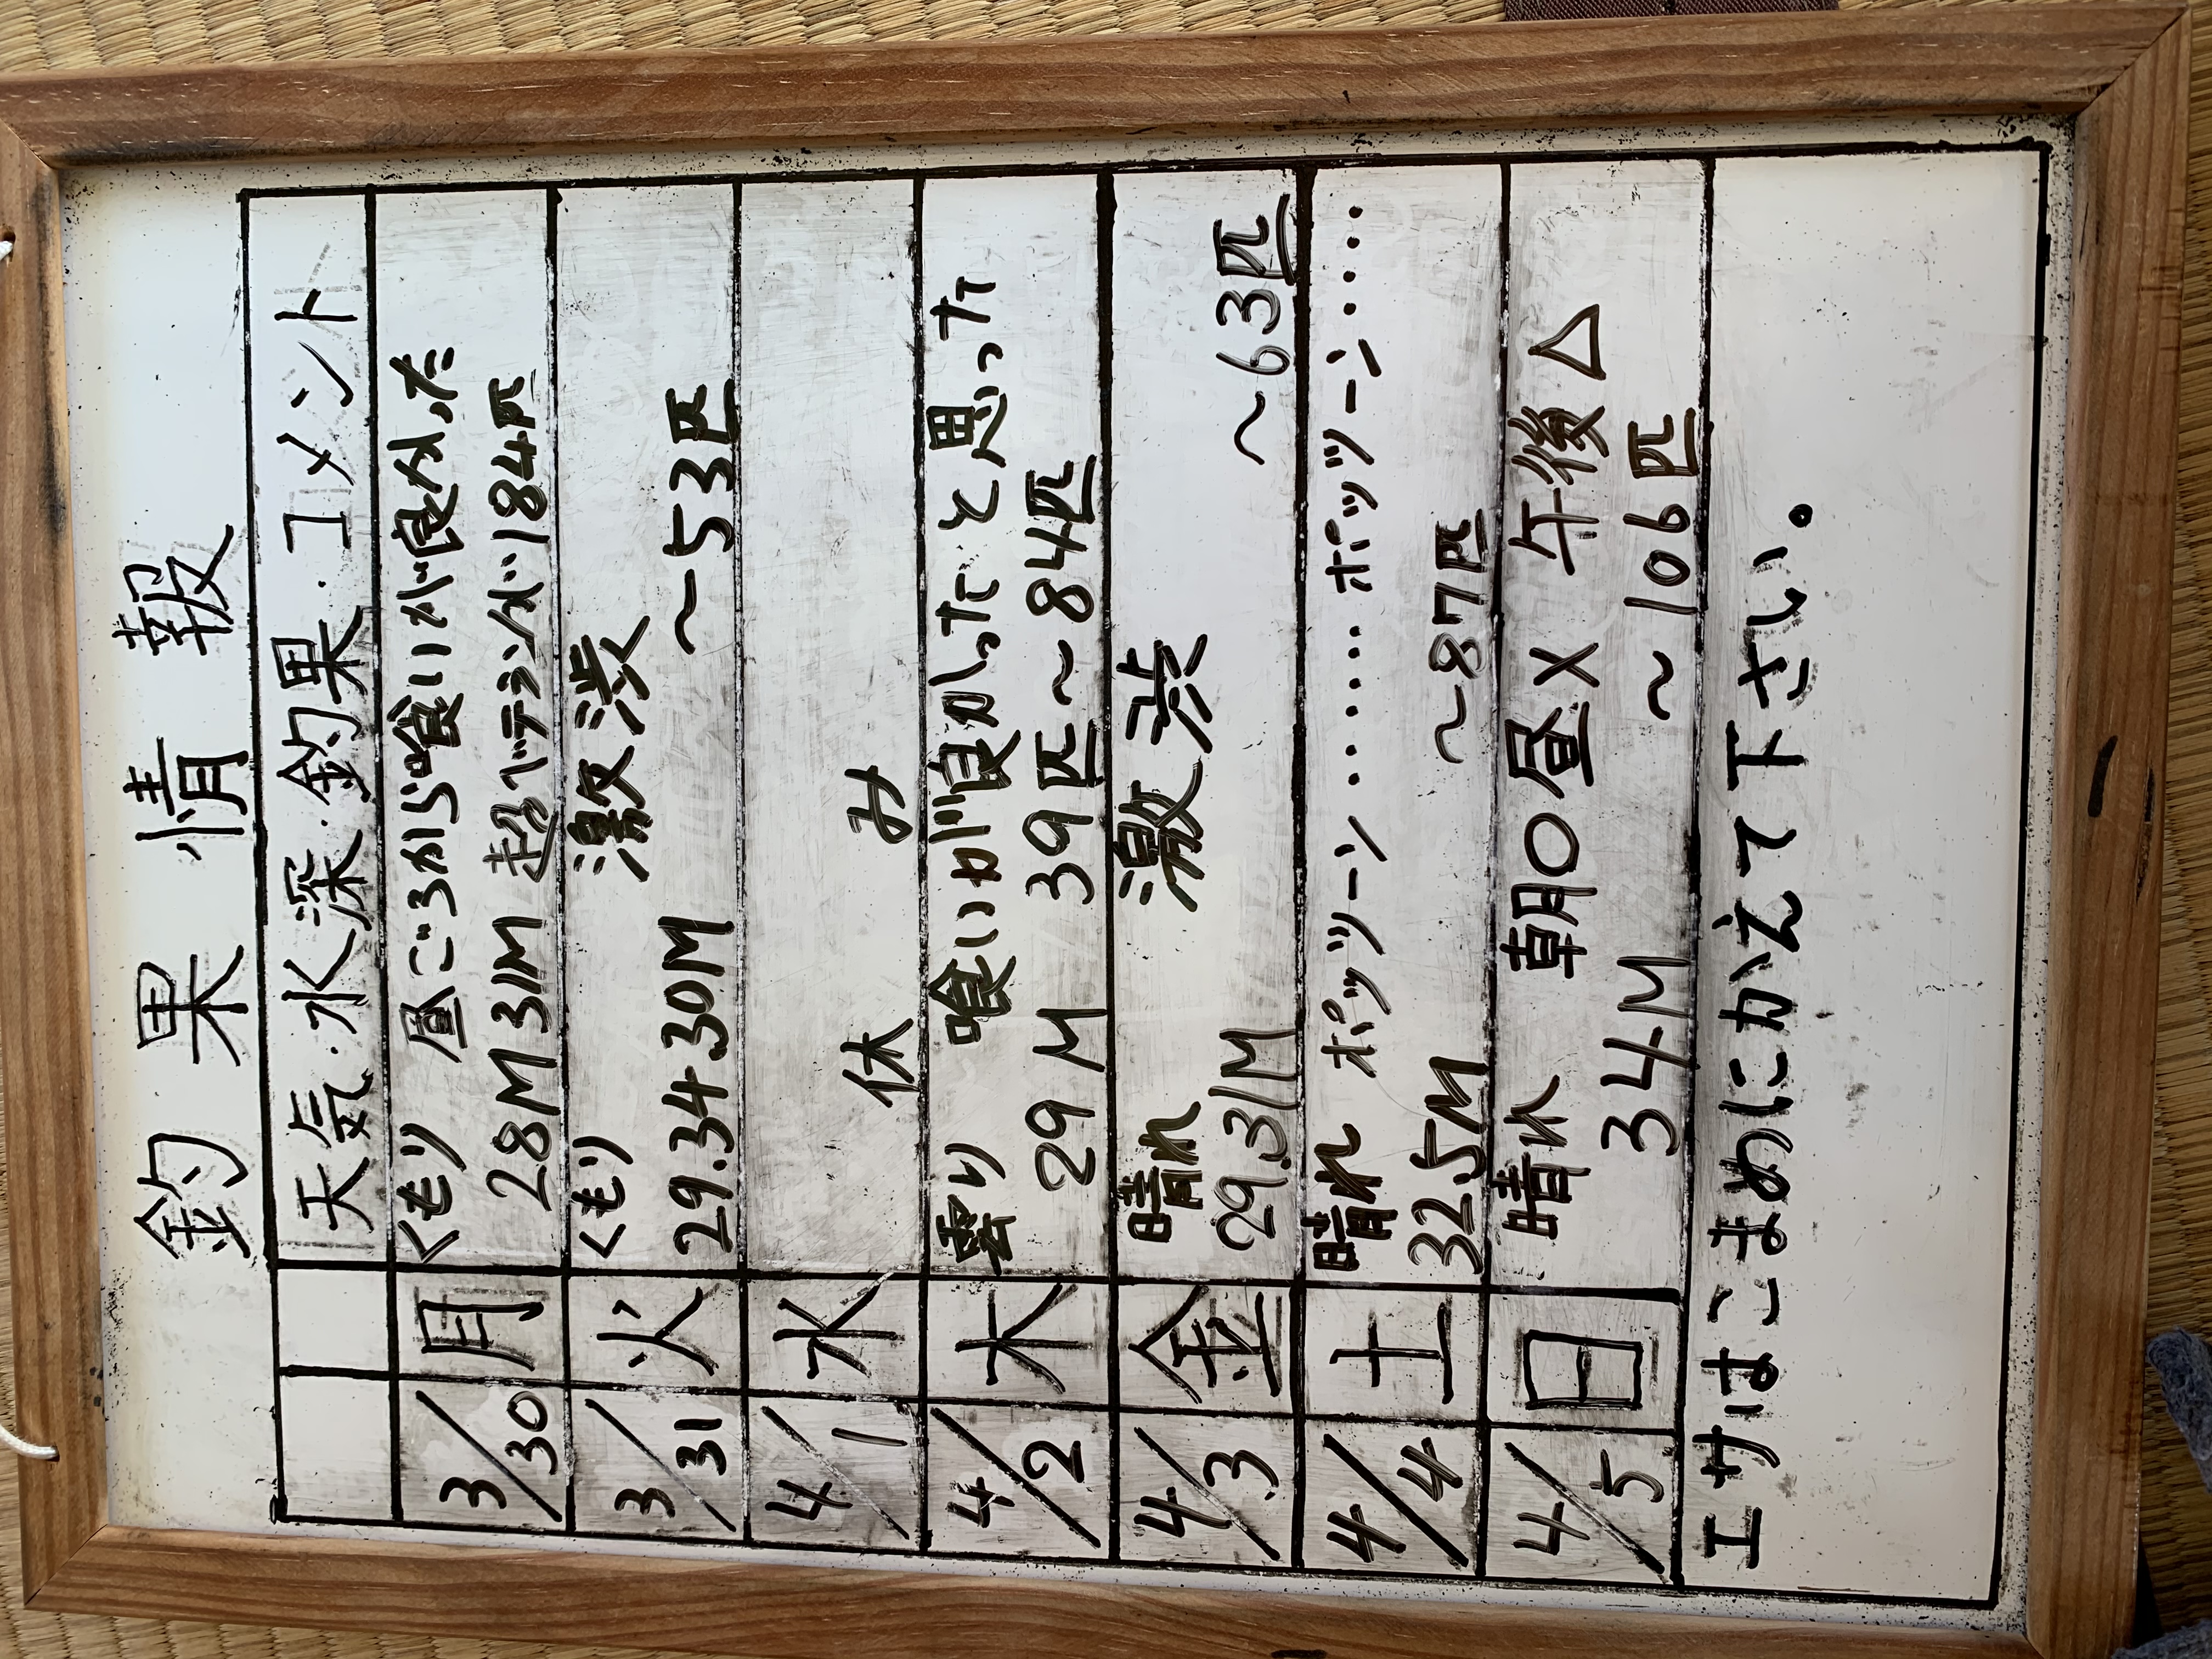 釣果情報
天気・水深・釣果・コメント
3/30 月 くもり 昼ごろから喰いが良かった
28M 31M 超ベテランが184匹
3/31 火 くもり 激渋
29.34.30M ～53匹
4/1 水 休み
4/2 木 曇り 喰いが良かったと思った
29M 39匹～84匹
4/3 金 晴れ 激渋
29.31M ～63匹
4/4 土 晴れ ポッツーン‥‥‥ポッツーン‥‥
32.5M ～87匹
4/5 日 晴れ 朝○昼×午後△
34M ～106匹
エサはこまめにかえて下さい。